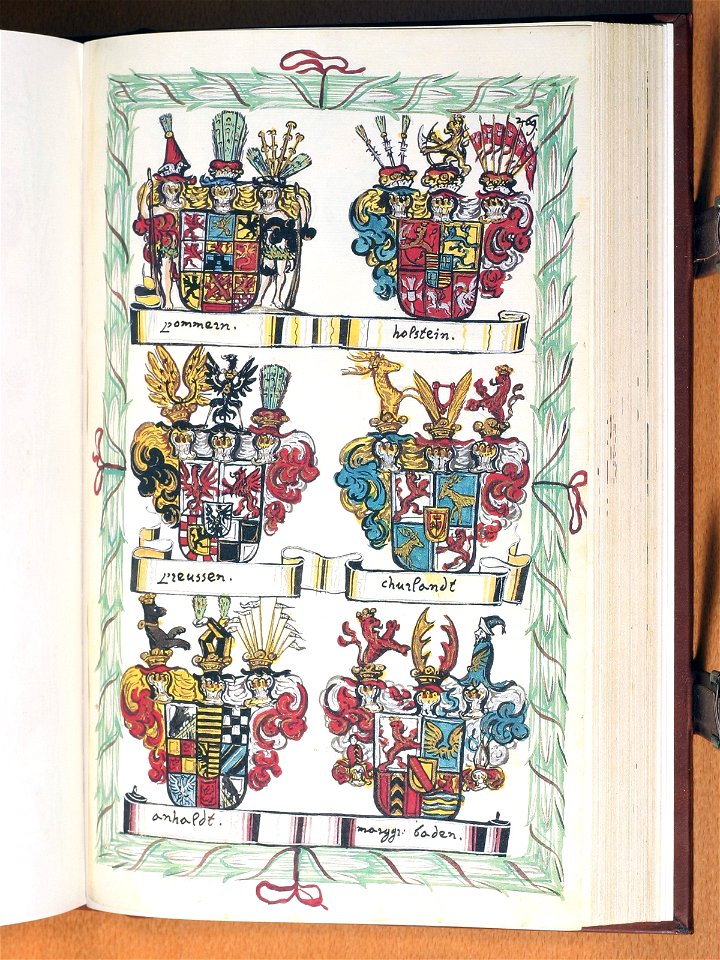 269.
pommern.
holstein.
preussen.
churlandt
anhaldt.
marggr: baden.